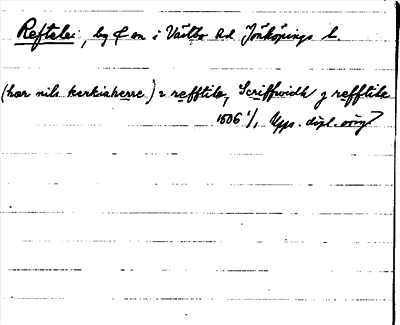 Reftele, by o en i Västbo hd Jönköpings l.
(hær nils kerkiaherre) i refftile, Scriffwidh j refftile
1506 1/1 Upps. dipl. orig